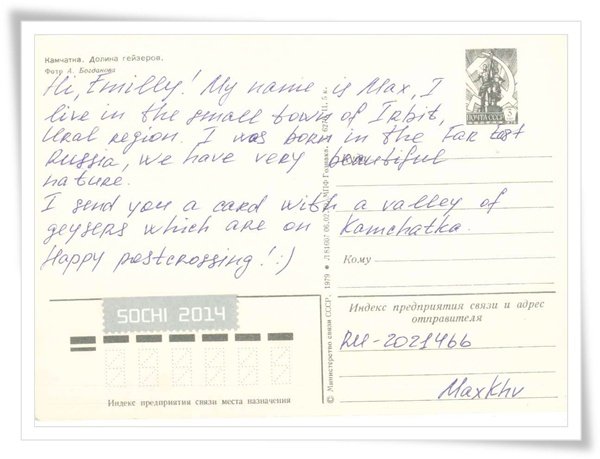 Камчатка. Долина гейзеров.
Фото А. Богданова
Hi, Emilly! My name is Max, I
live in the small town of Irbit,
Ural region. I was born in the Far East
Russia, we have very beautiful
nature.
I send you a card with a valley of
geysers which are on Kamchatka.
Happy postcrossing! :)
ПОЧТА СССР
Куда
Кому
SOCHI 2014
Индекс предприятия связи места назначения
© Министерство связи СССР. 1979
Индекс предприятия связи и адрес
отправителя
RU-2021466
MaxKhv